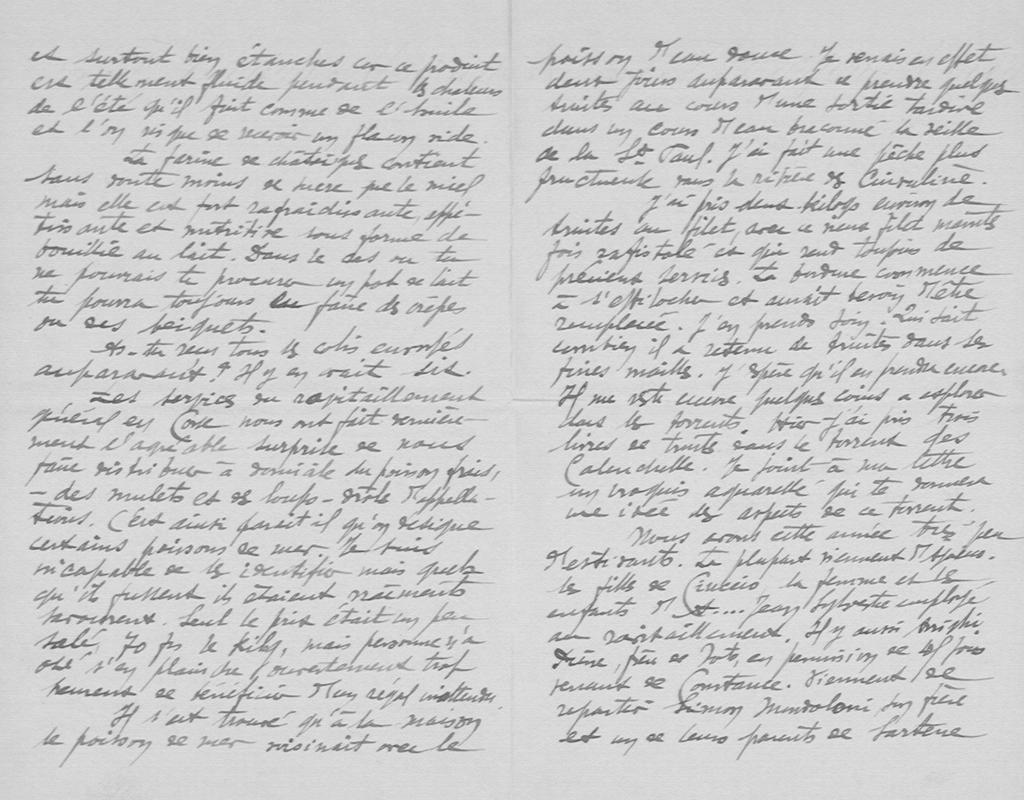 et surtout bien étanches car ce produit
est tellement fluide pendant les chaleurs
de l'été qu'il fuit comme de l'huile
et l'on risque de recevoir un flacon vide.
La farine de châtaignes contient
sans doute moins de sucre que le miel
mais elle est fort rafraîchissante, appé-
tissante et nutritive sous forme de
bouillie au lait. Dans le cas où tu
ne pourrais te procurer un pot de lait
tu pourra toujours en faire des crêpes
ou des beignets.
As-tu reçu tous les colis envoyés
auparavant? Il y en avait six.
Les services du ravitaillement
général en Corse nous ont fait dernière-
ment l'agréable surprise de nous
faire distribuer à domicile du poisson frais,
- des mulets et des loups - drôle d'appella-
tions. C'est ainsi paraît il qu'on désigne
certains poissons de mer. Je suis
incapable de les identifier mais quels
qu'ils fussent ils étaient vraiments
savoureux. Seul le prix était un peu
salé, 70 frs le kilog, mais personne n'a
osé s'en plaindre ouvertement trop
heureux de bénéficier d'un régal inattendu.
Il s'est trouvé qu'à la maison
le poisson de mer voisinait avec le
poisson d'eau douce. Je venais en effet
deux jours auparavant de prendre quelques
truites au cours d'une sortie tardive
dans un cours d'eau braconné la veille
de la St Paul. J'ai fait une pêche plus
fructueuse dans la rivière de
J'ai pris deux kilogs environ de
truites au filet, avec ce vieux filet maintes
fois rafistolé et qui rend toujours de
précieux services. La bordure commence
à s'effilocher et aurait besoin d'être
remplacée. J'en prends soin. Qui sait
combien il a retenu de truites dans ses
fines mailles. J'espère qu'il en prendra encore.
Il me reste encore quelques coins à explorer
dans les torrents. Hier j'ai pris trois
livres de truite dans le torrent des
Je joint à ma lettre
un croquis aquarellé qui te donnera
une idée des aspects de ce torrent.
Nous avons cette année très peu
d'estivants. La plupart viennent d'
les filles de la femme et les
enfants de Jean Sylvestre employé
au ravitaillement. Il y aussi
frère de en permission de jours
venant de Constance. Viennent de
repartir Simon Mondoloni, son frère
et un de leurs parents de Sartène